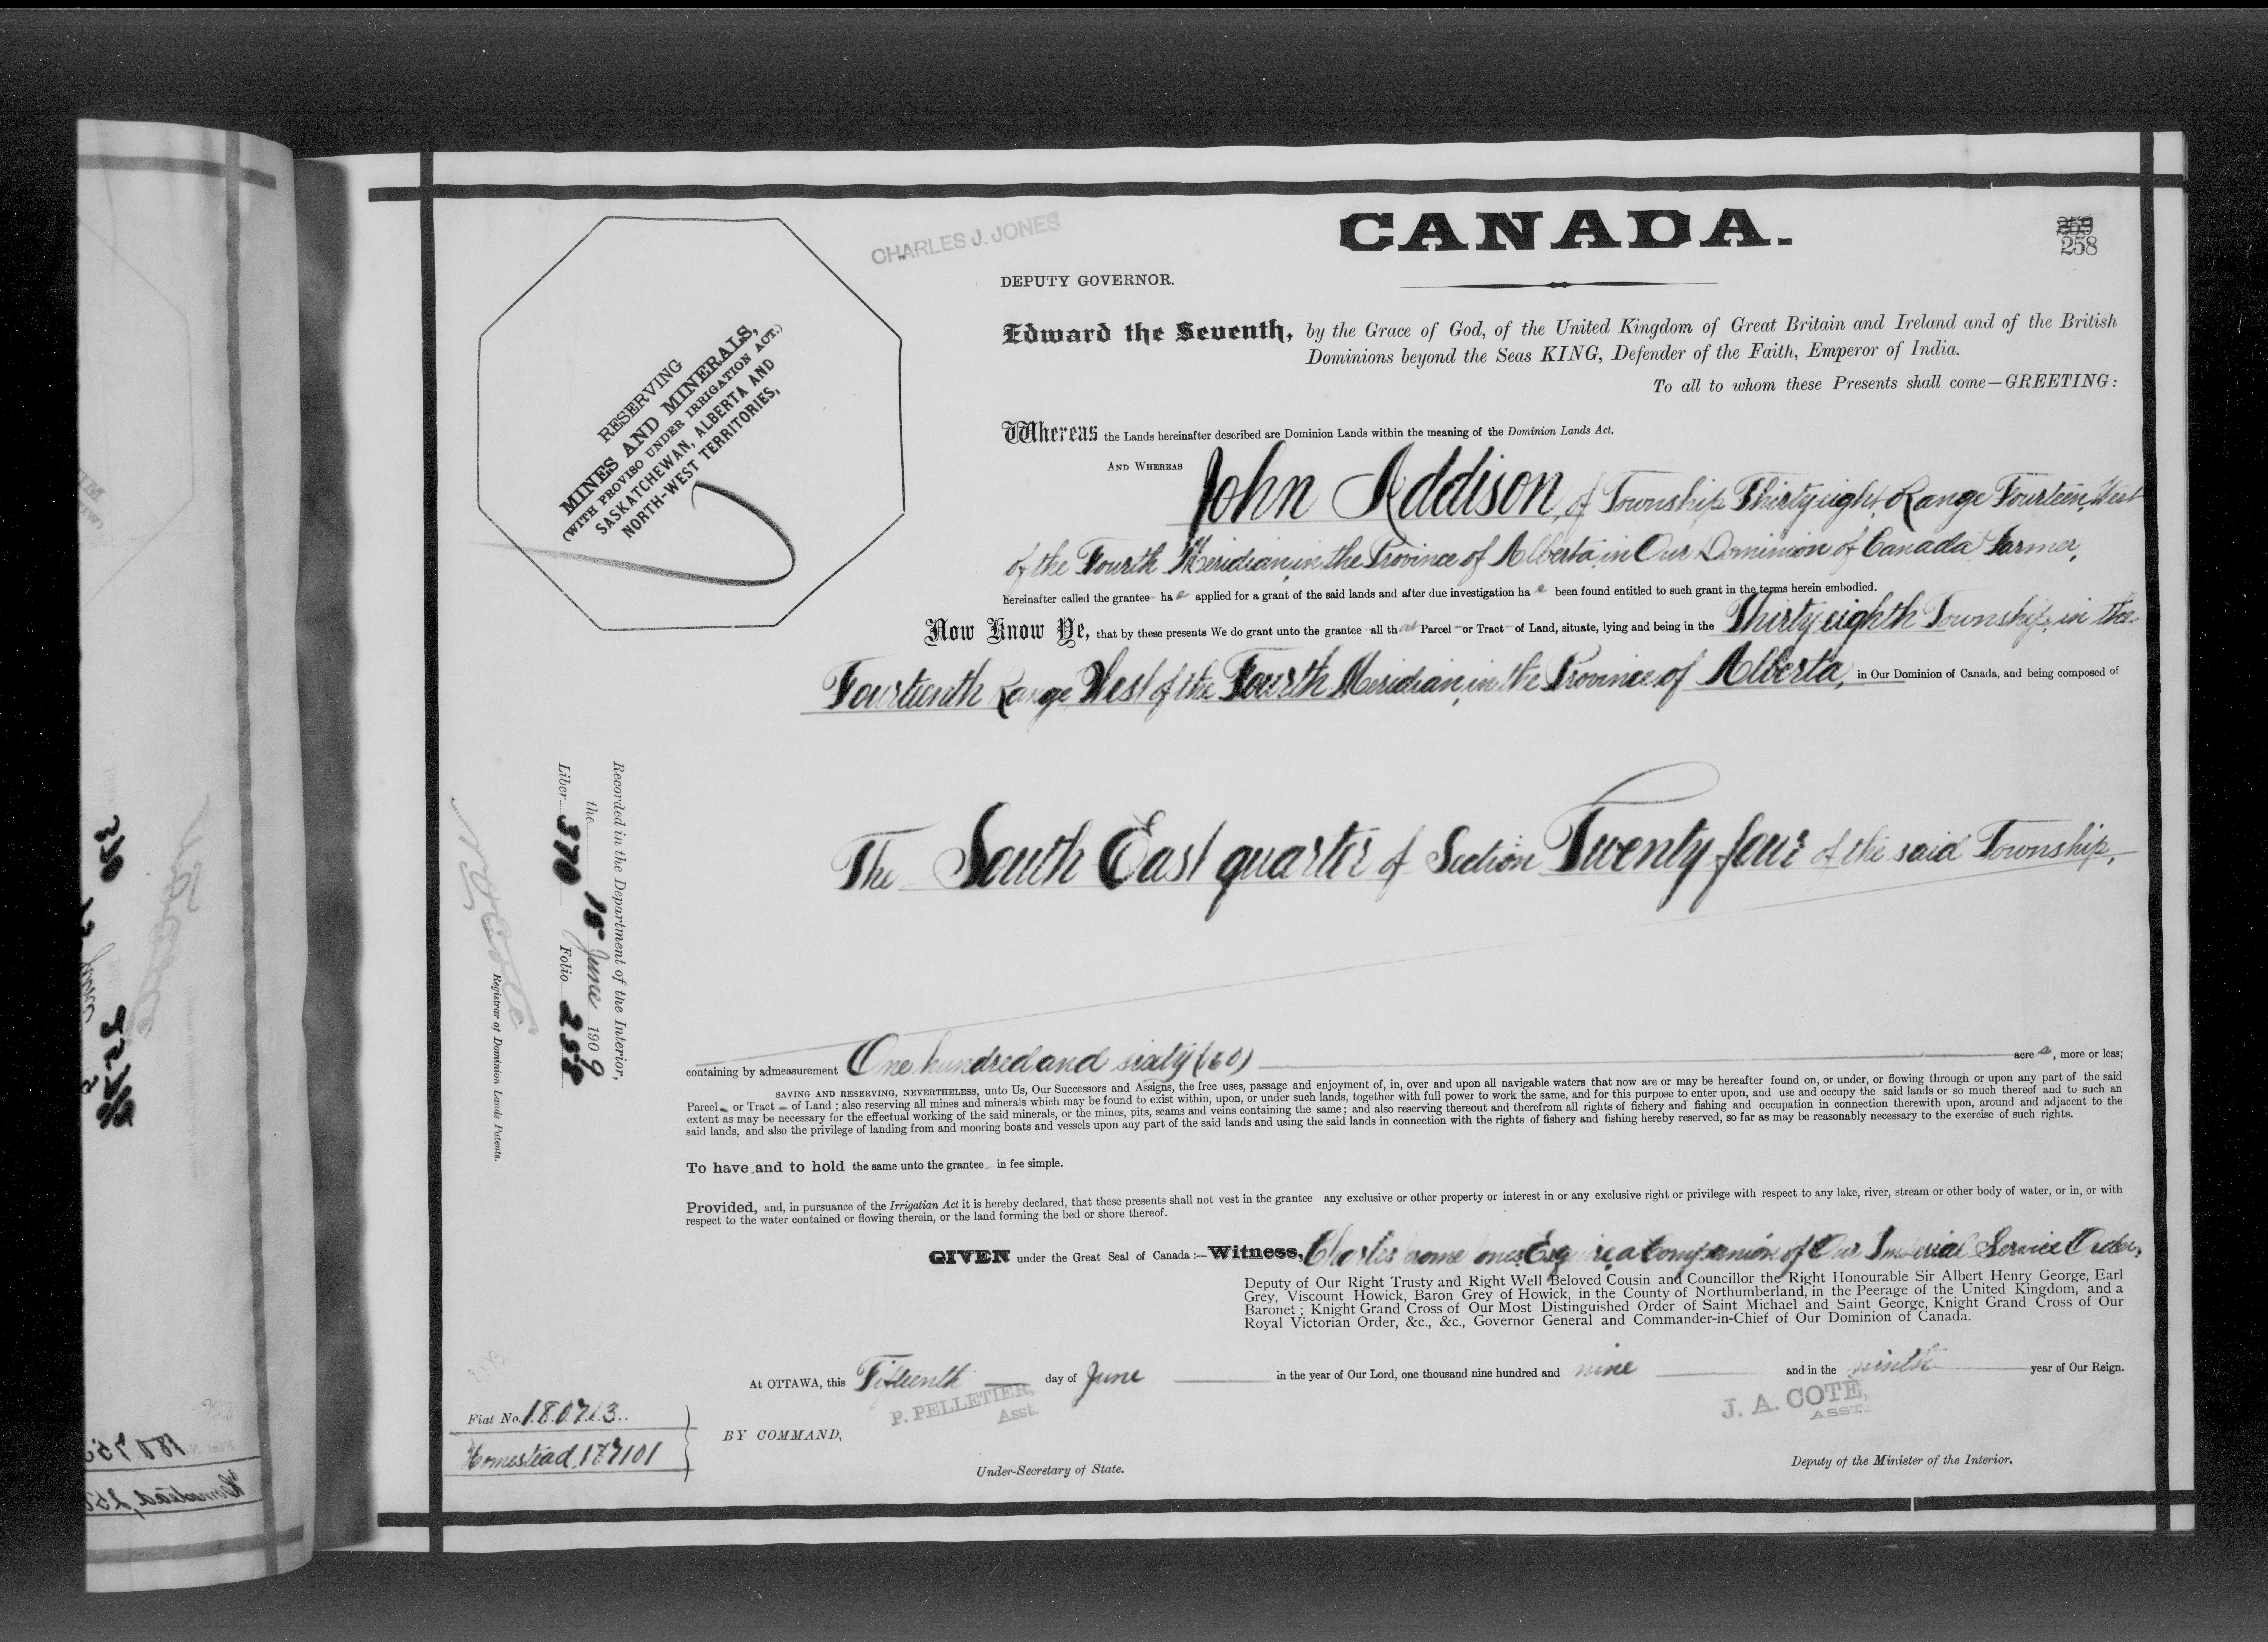 CANADA.
259
258
CHARLES J. JONES
DEPUTY GOVERNOR.
RESERVING
MINES AND MINERALS,
(WITH PROVISO UNDER IRRIGATION ACT.)
SASKATCHEWAN, ALBERTA AND
NORTH-WEST TERRITORIES,
Edward the Seventh, by the Grace of God, of the United Kingdom of Great Britain and Ireland and of the British
Dominions beyond the Seas KING, Defender of the Faith, Emperor of India.
To all to whom these Presents shall come—GREETING:
Whereas the Lands hereinafter described are Dominion Lands within the meaning of the Dominion Lands Act.
AND WHEREAS John Addison, of Township Thirty eight, Range Fourteen, West
of the Fourth Meridian, in the Province of Alberta, in Our Dominion of Canada Farmer,
hereinafter called the grantee ha s applied for a grant of the said lands and after due investigation ha s been found entitled to such grant in the terms herein embodied.
Now Know Ye, that by these presents We do grant unto the grantee all that Parcel or Tract of Land, situate, lying and being in the Thirty eighth Township, in the
Fourteenth Range West of the Fourth Meridian, in the Province of Alberta, in Our Dominion of Canada, and being composed of
The South East quarter of Section Twenty four of the said Township,
containing by admeasurement One hundred and sixty (160) acre s, more or less;
SAVING AND RESERVING, NEVERTHELESS, unto Us, Our Successors and Assigns, the free uses, passage and enjoyment of, in, over and upon all navigable waters that now are or may be hereafter found on, or under, or flowing through or upon any part of the said
Parcel or Tract of Land; also reserving all mines and minerals which may be found to exist within, upon, or under such lands, together with full power to work the same, and for this purpose to enter upon, and use and occupy the said lands or so much thereof and to such an
extent as may be necessary for the effectual working of the said minerals, or the mines, pits, seams and veins containing the same; and also reserving thereout and therefrom all rights of fishery and fishing and occupation in connection therewith upon, around and adjacent to the
said lands, and also the privilege of landing from and mooring boats and vessels upon any part of the said lands and using the said lands in connection with the rights of fishery and fishing hereby reserved, so far as may be reasonably necessary to the exercise of such rights.
To have and to hold the same unto the grantee in fee simple.
Provided, and, in pursuance of the Irrigatian Act it is hereby declared, that these presents shall not vest in the grantee any exclusive or other property or interest in or any exclusive right or privilege with respect to any lake, river, stream or other body of water, or in, or with
respect to the water contained or flowing therein, or the land forming the bed or shore thereof.
GIVEN under the Great Seal of Canada:—Witness, Charles Jerome Jones Esquire, a Companion of Our Imperial Service Order,
Deputy of Our Right Trusty and Right Well Beloved Cousin and Councillor the Right Honourable Sir Albert Henry George, Earl
Grey, Viscount Howick, Baron Grey of Howick, in the County of Northumberland, in the Peerage of the United Kingdom, and a
Baronet; Knight Grand Cross of Our Most Distinguished Order of Saint Michael and Saint George, Knight Grand Cross of Our
Royal Victorian Order, &c., &c., Governor General and Commander-in-Chief of Our Dominion of Canada.
At OTTAWA, this Fifteenth day of June in the year of Our Lord, one thousand nine hundred and nine and in the ninth year of Our Reign.
P. PELLETIER,
Asst.
J. A. COTE,
ASST.
BY COMMAND,
Under-Secretary of State.
Deputy of the Minister of the Interior.
Recorded in the Department of the Interior,
the 18 June 1909
Liber 370 Folio 258
Registrar of Dominion Lands Patents.
Fiat No. 180713
Homestead 177101